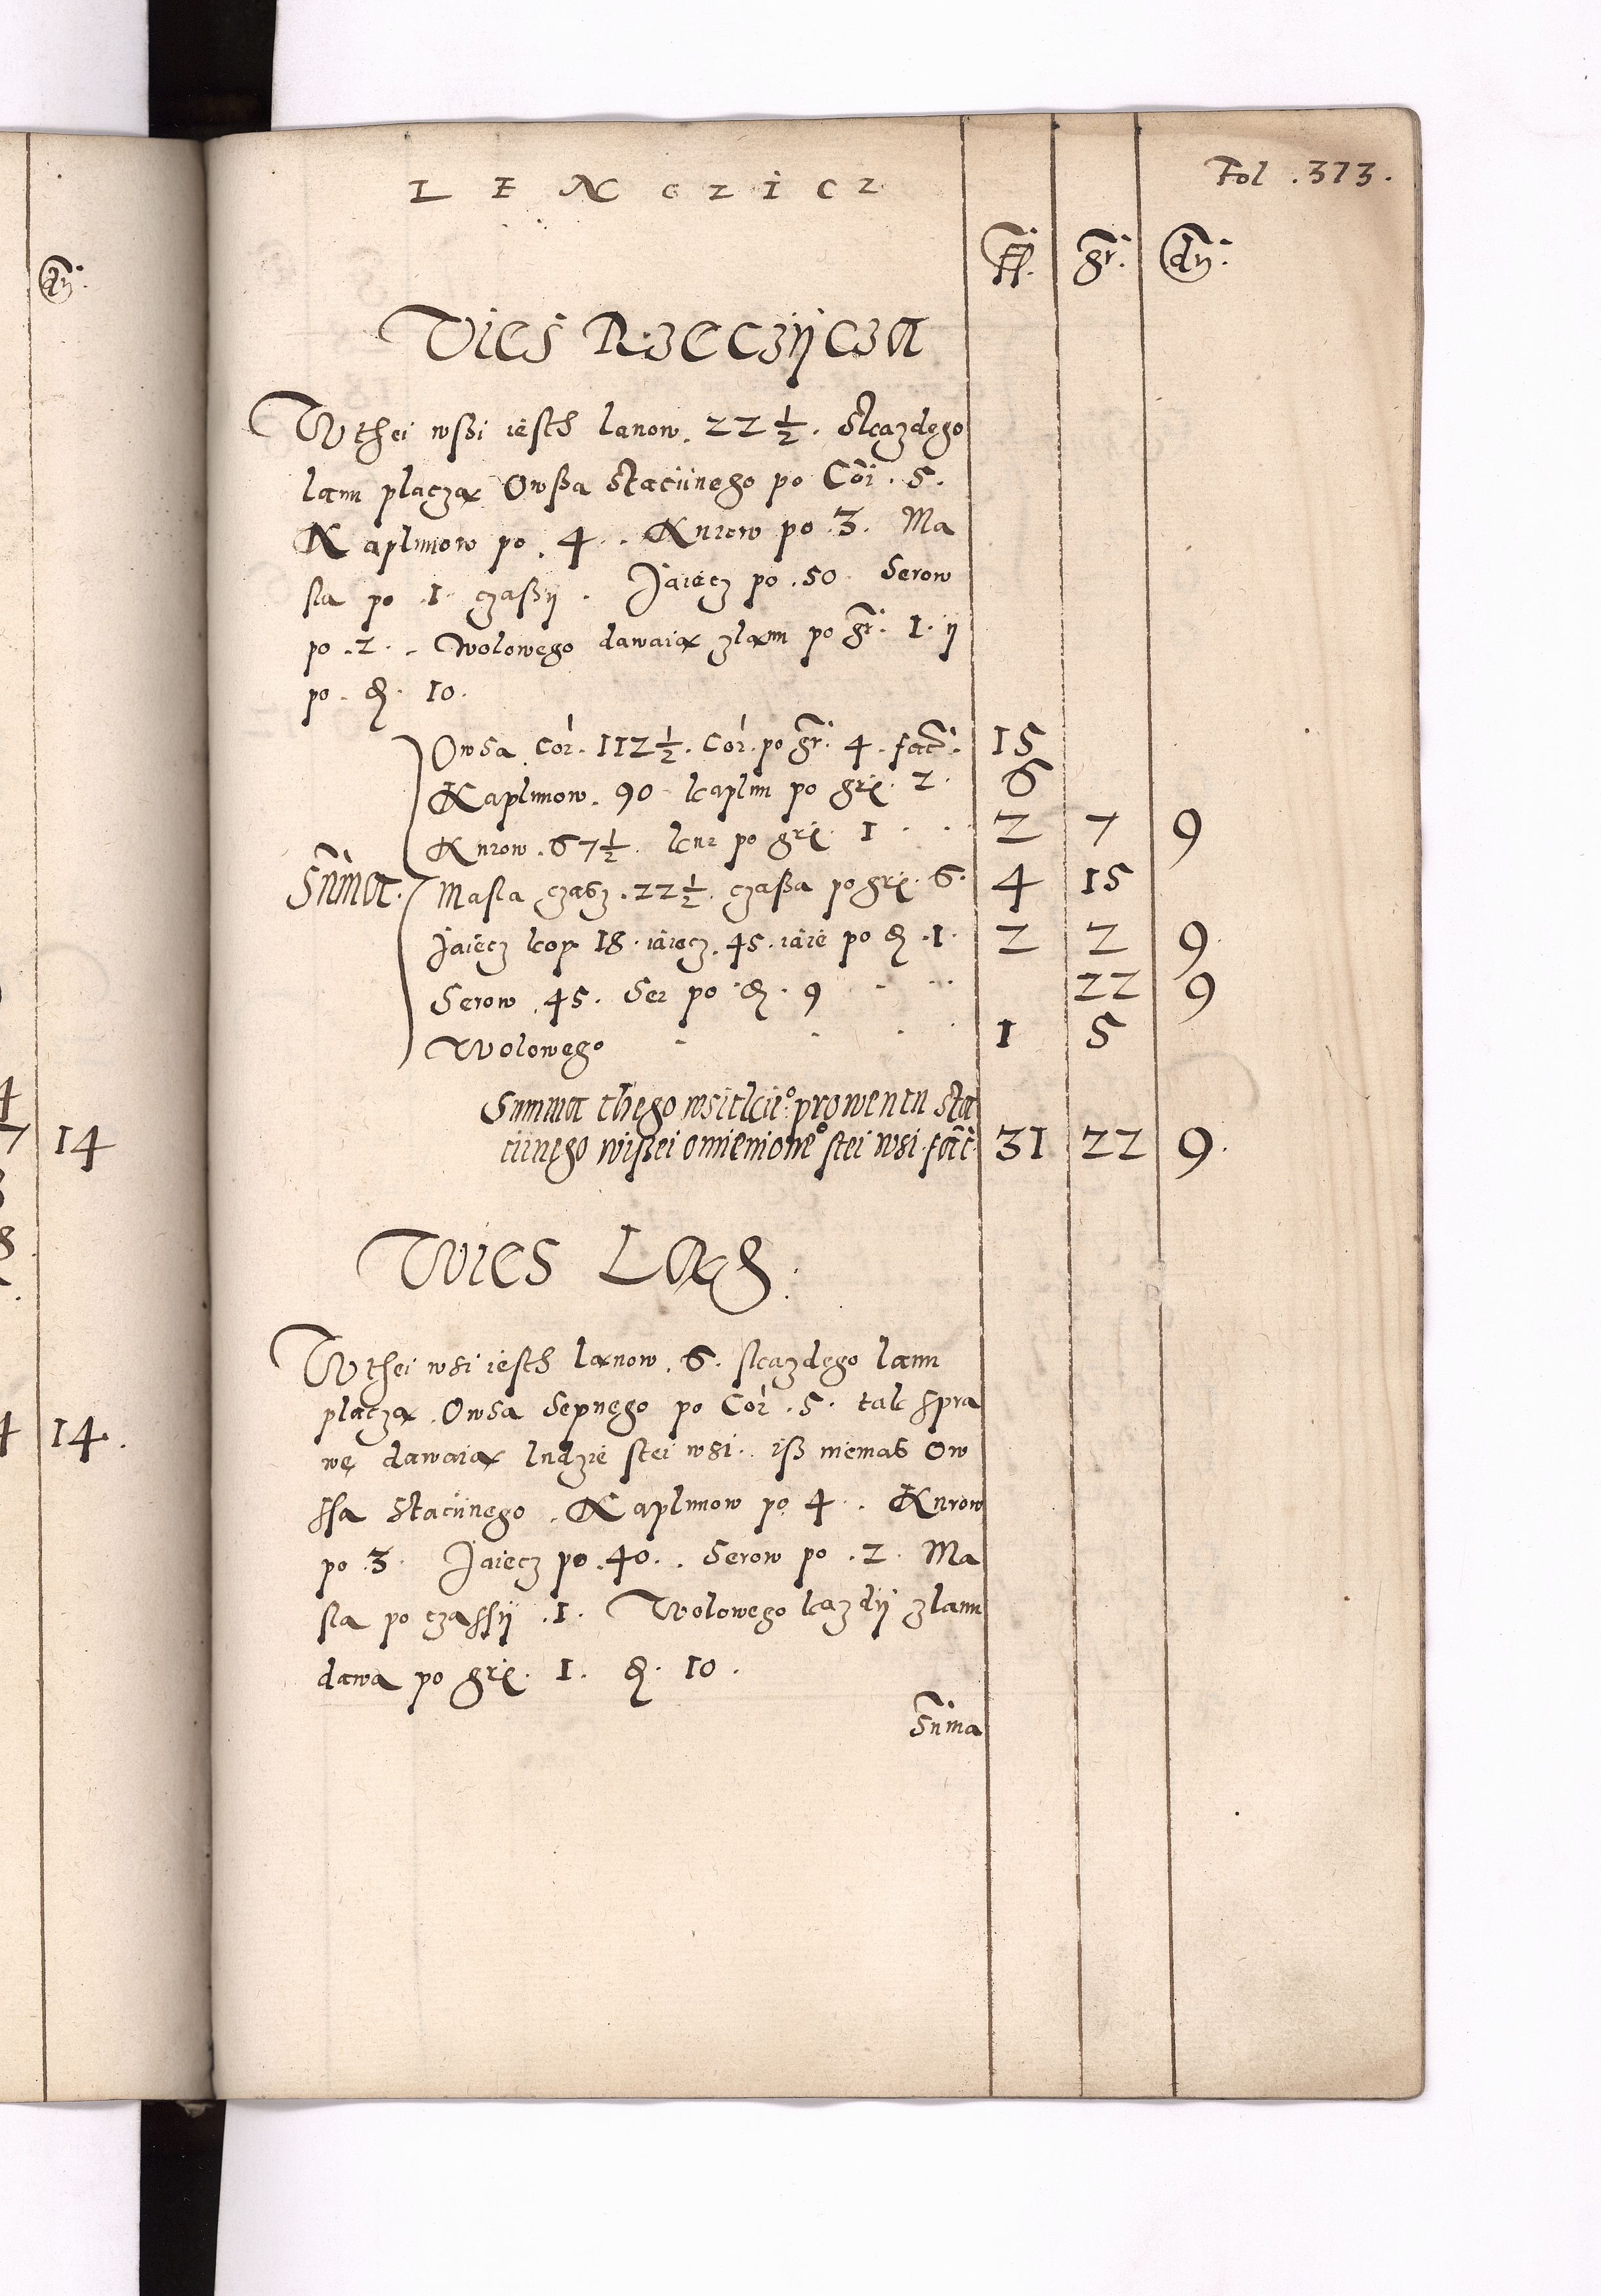 LENCZICZ
Fol. 373.
ff. gr. dn.
Vies Rzeczÿcza
W thei wßi iesth lanow. 22 1/2. Skazdego
lanu placzą Owßa Staciinego po Cor. 5.
Kaplunow po. 4. Kurow po 3. Ma
sla po .1. czaßÿ. Jaiecz po .50. Serow
po .2. Wolowego dawaią zlanu po gr. 1. ÿ
po. d. 10.
Owsa Cor. 112 1/2. Cor. po gr. 4. facit. 15
Kaplunow. 90 kaplun po gr. 2. 6
Kurow. 67 1/2. kur po gr. 1 2 7 9
Suma. Masla czasz. 22 1/2. czaßa po gr. 6. 4 15
Jaiecz kop 18. iaiecz. 45. iaie po d. 1. 2 2 9.
Serow. 45. Ser po d. 9 22 9
Wolowego 1 5
Summa thego wsitkiego prowentu sta
ciinego wißei omienionego stei wsi. facit. 31 22 9.
Wies Łąg.
W thei wsi iesth lanow. 6. skazdego lanu
placzą. Owsa Sepnego po Cor. 5. tak spra
wę dawaią ludzie stei wsi. iß niemas Ow
ssa Staciinego. Kaplunow po 4. Kurow
po 3. Jaiecz po .40. Serow po .2. Ma
sla po czassÿ .1. Wolowego kazdÿ zlanu
dawa po gr. 1. d. 10.
Suma
dn.
4
7 14
8
4 14.